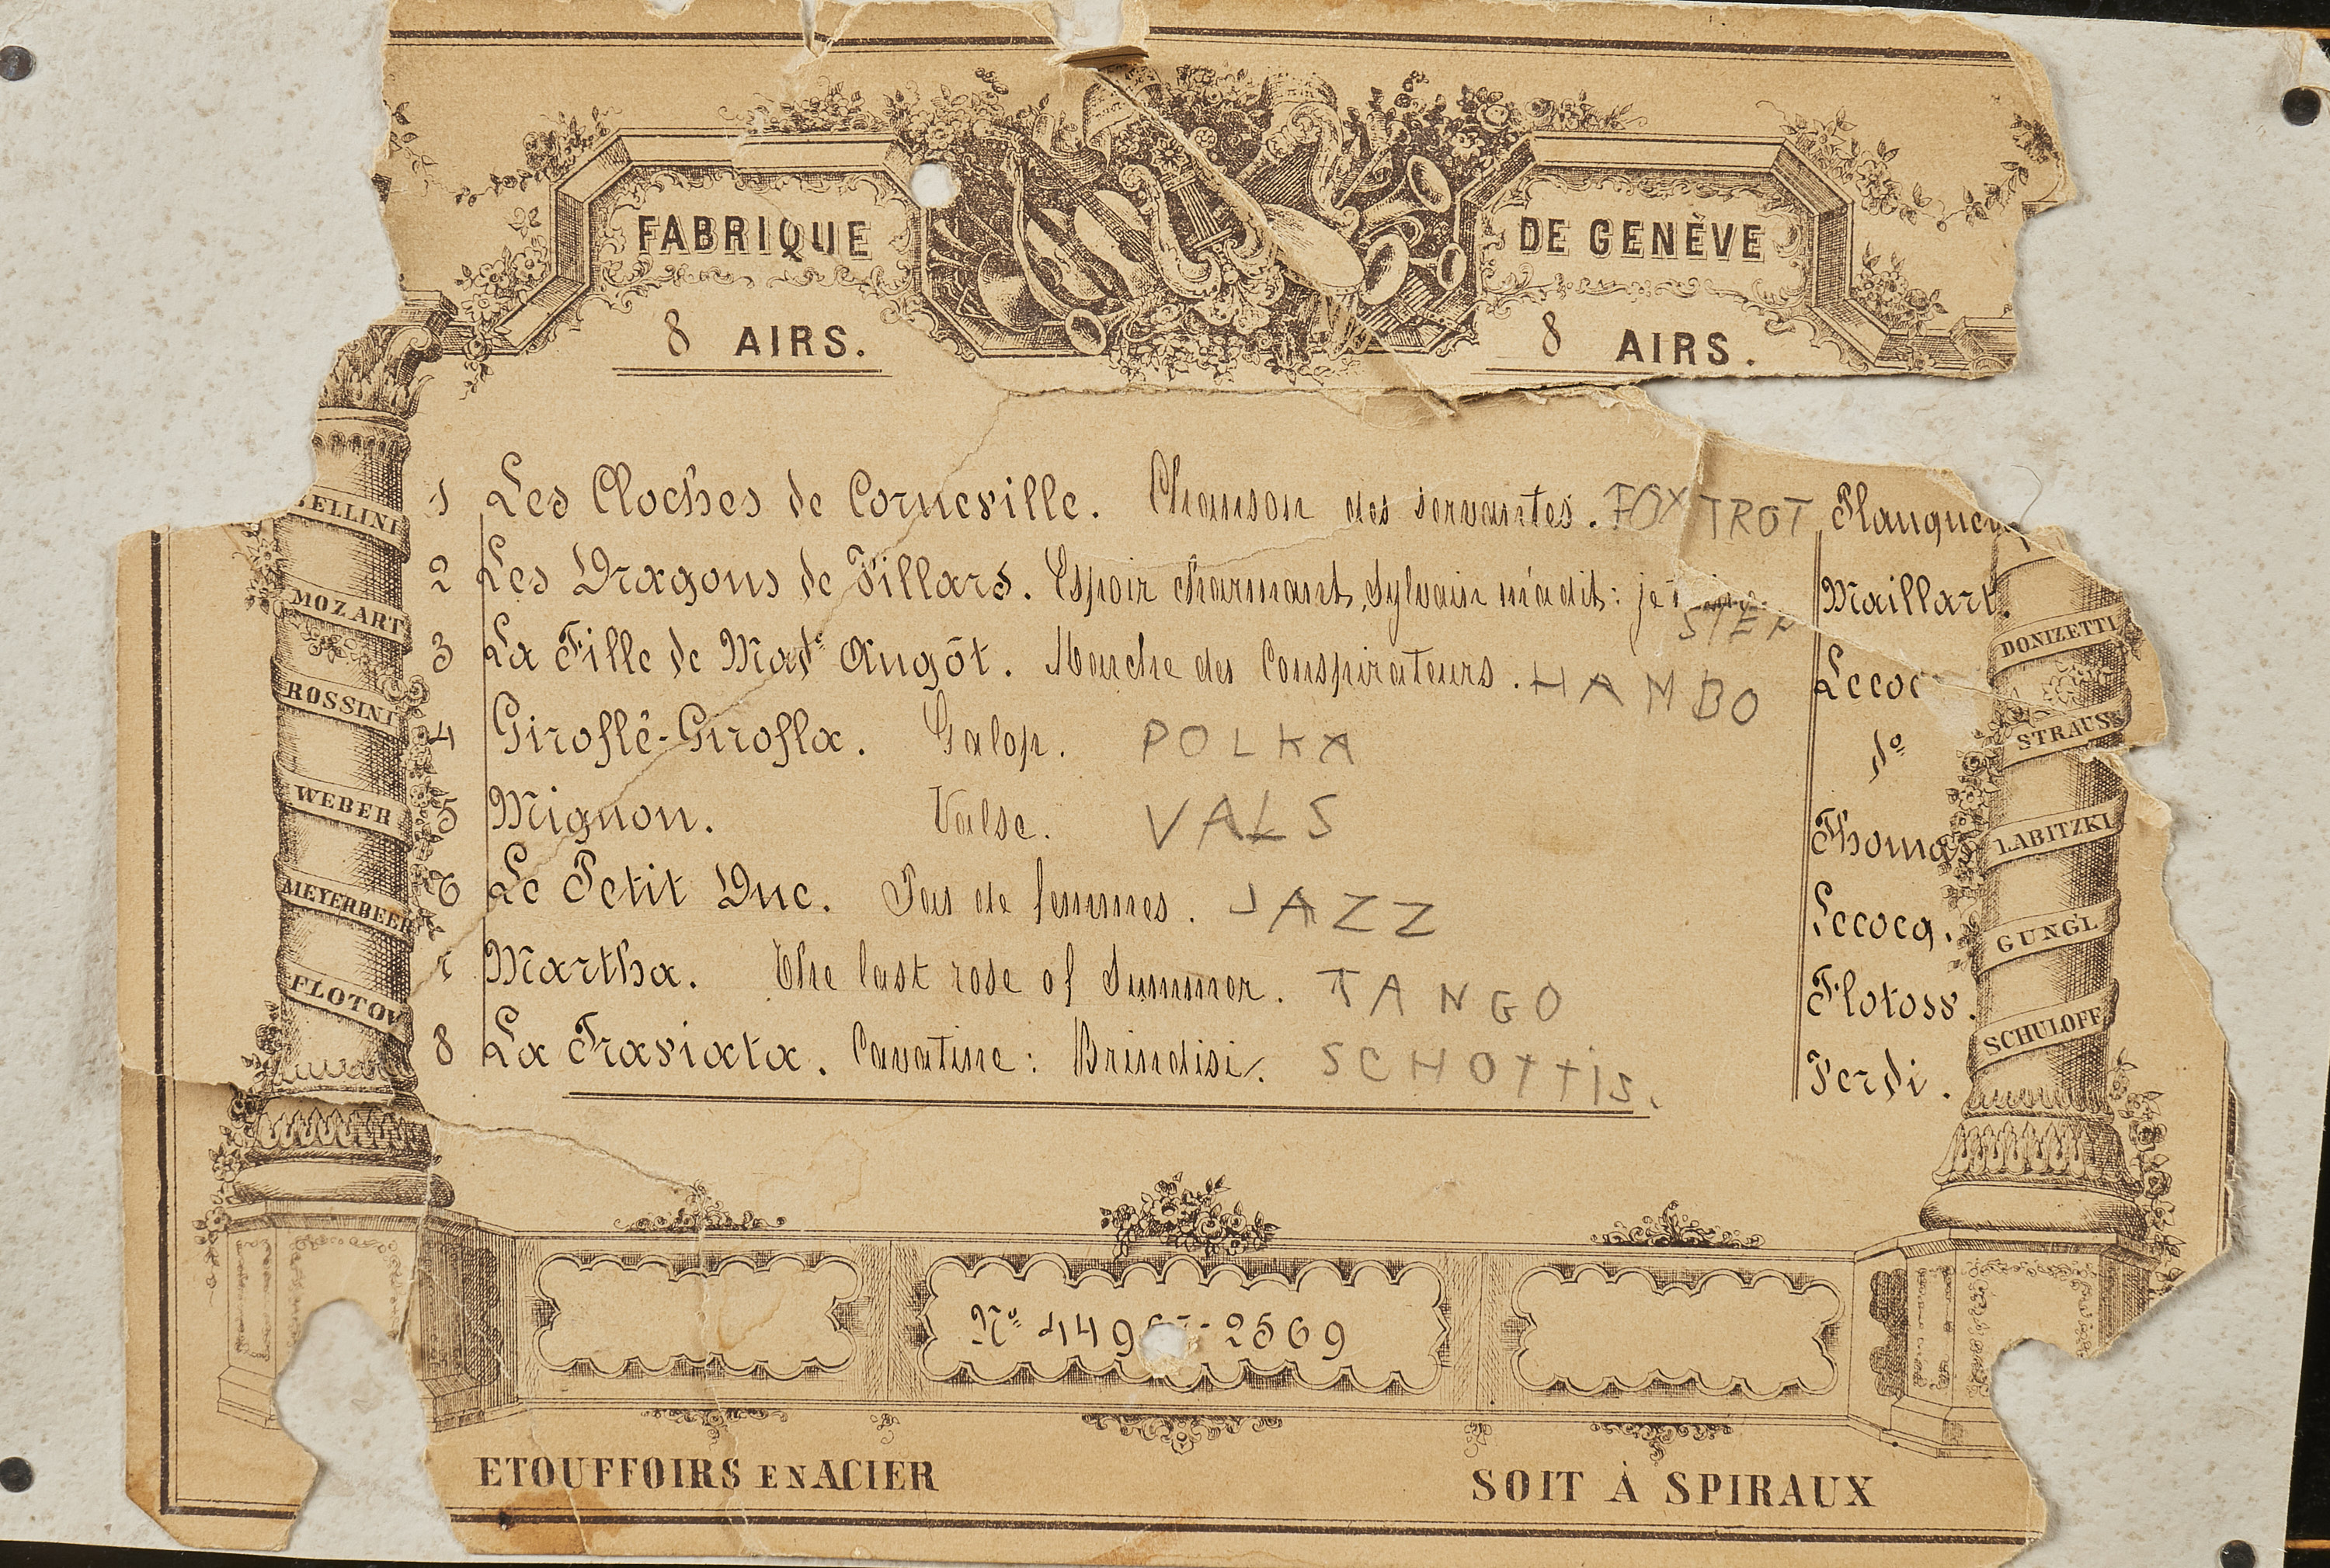 FABRIQUE DE GENÈVE
8 AIRS. 8 AIRS.
1 Les Cloches de Corneville. Chanson des servantes. FOXTROT Planquet
2 Les Dragons de Villars. Espoir charmant, Sylvain m'a dit: je Maillart.
STEP
3 La Fille de Mad.e Angôt. Marche des Conspirateurs. HAMBO Lecoc
4 Giroflé-Girofla. Galop. POLKA do
5 Mignon. Valse. VALS Thomas
6 Le Petit Duc. Pas de femmes. JAZZ Lecocq.
Martha. The last rose of Summer. TANGO Flotow.
8 La Traviata. Cavatine: Brindisi. SCHOTTIS. Verdi.
BELLINI
MOZART
ROSSINI
WEBER
MEYERBEER
FLOTOW
DONIZETTI
STRAUSS
LABITZKI
GUNGL
SCHULOFF
No 449 - 2569
ETOUFFOIRS EN ACIER SOIT À SPIRAUX